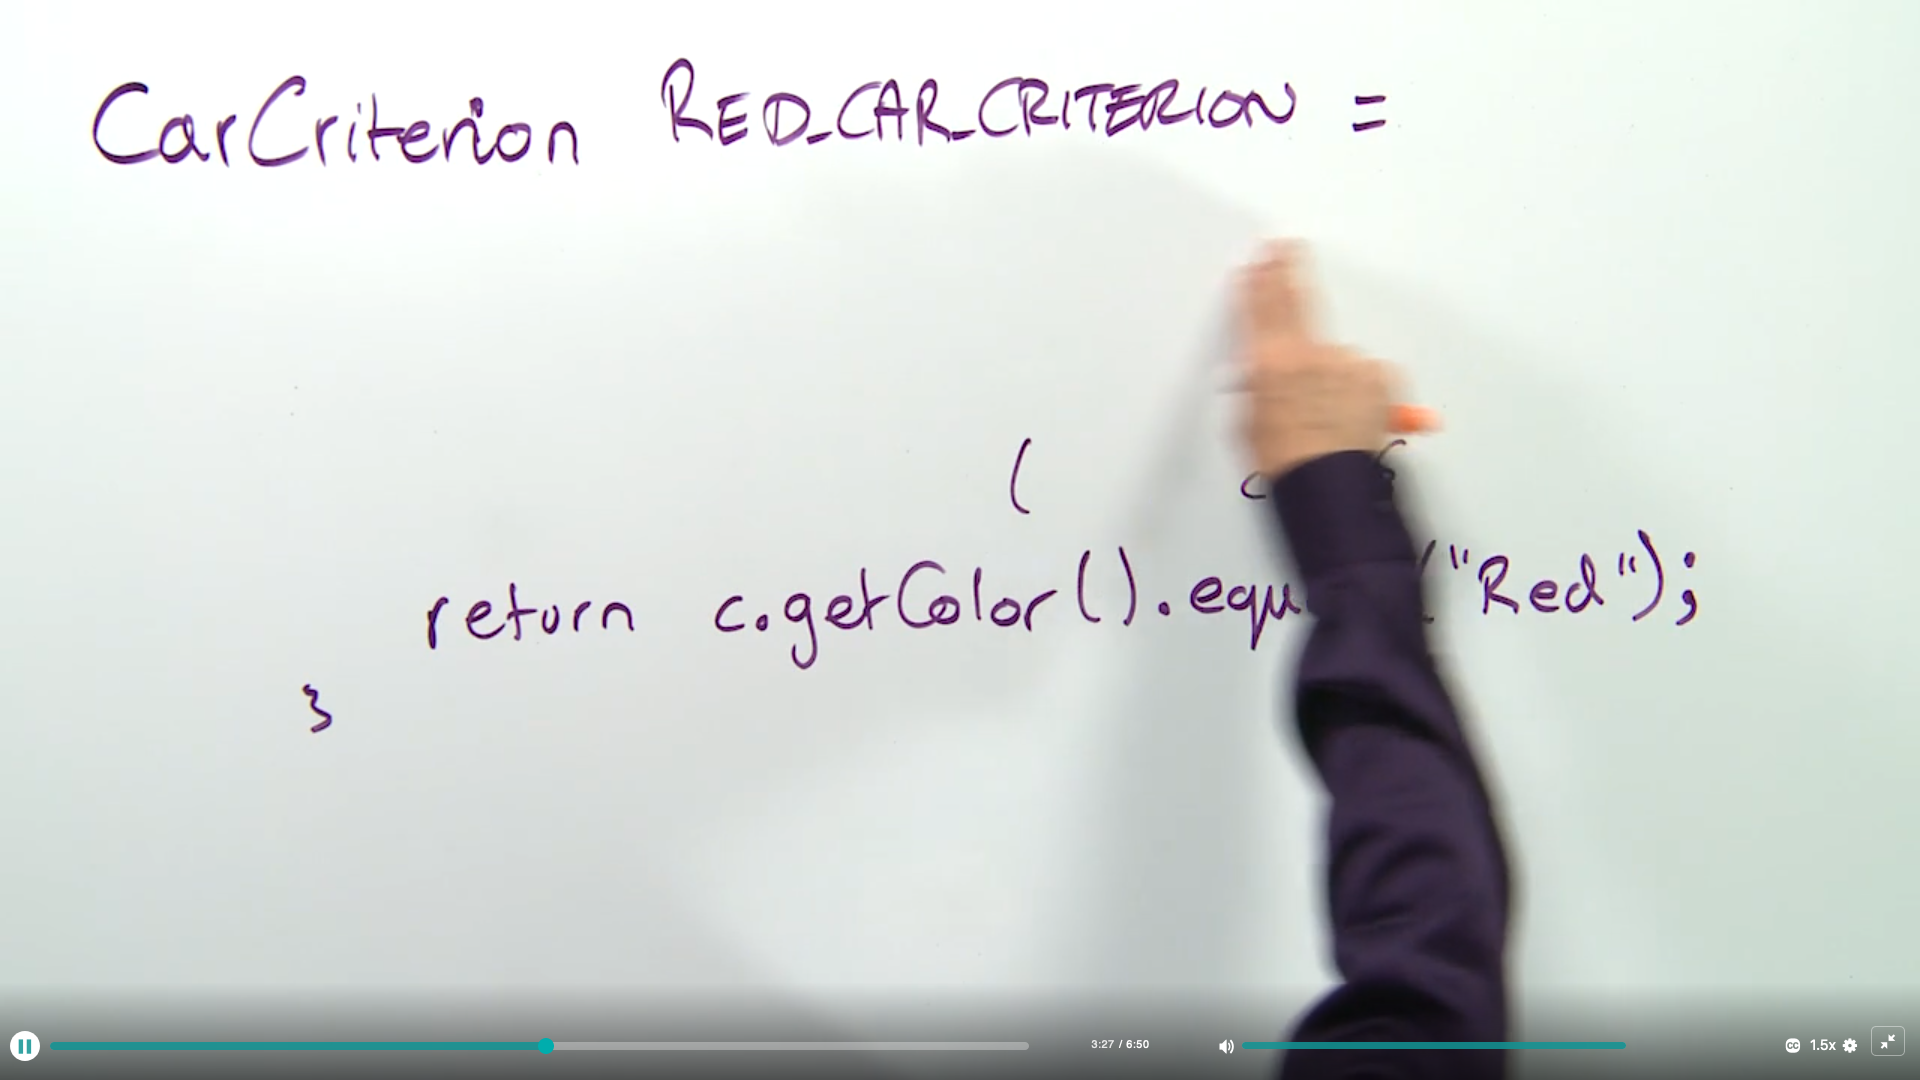 CarCriterion RED_CAR_CRITERION =
(
return c.getColor().equ ("Red");
}
3:27 / 6:50
CC 1.5x